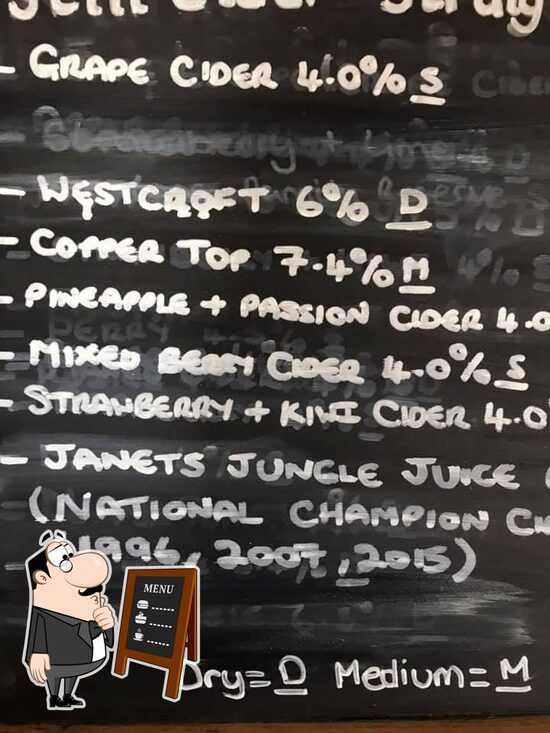 - GRAPE CIDER 4.0% S
- WESTCROFT 6% D
- COPPER TOP 7.4% M
- PINEAPPLE + PASSION CIDER 4.0
- MIXED BERRY CIDER 4.0% S
- STRAWBERRY + KIWI CIDER 4.0
- JANETS JUNGLE JUICE
(NATIONAL CHAMPION
1996, 2007, 2015)
MENU
Dry = D Medium = M